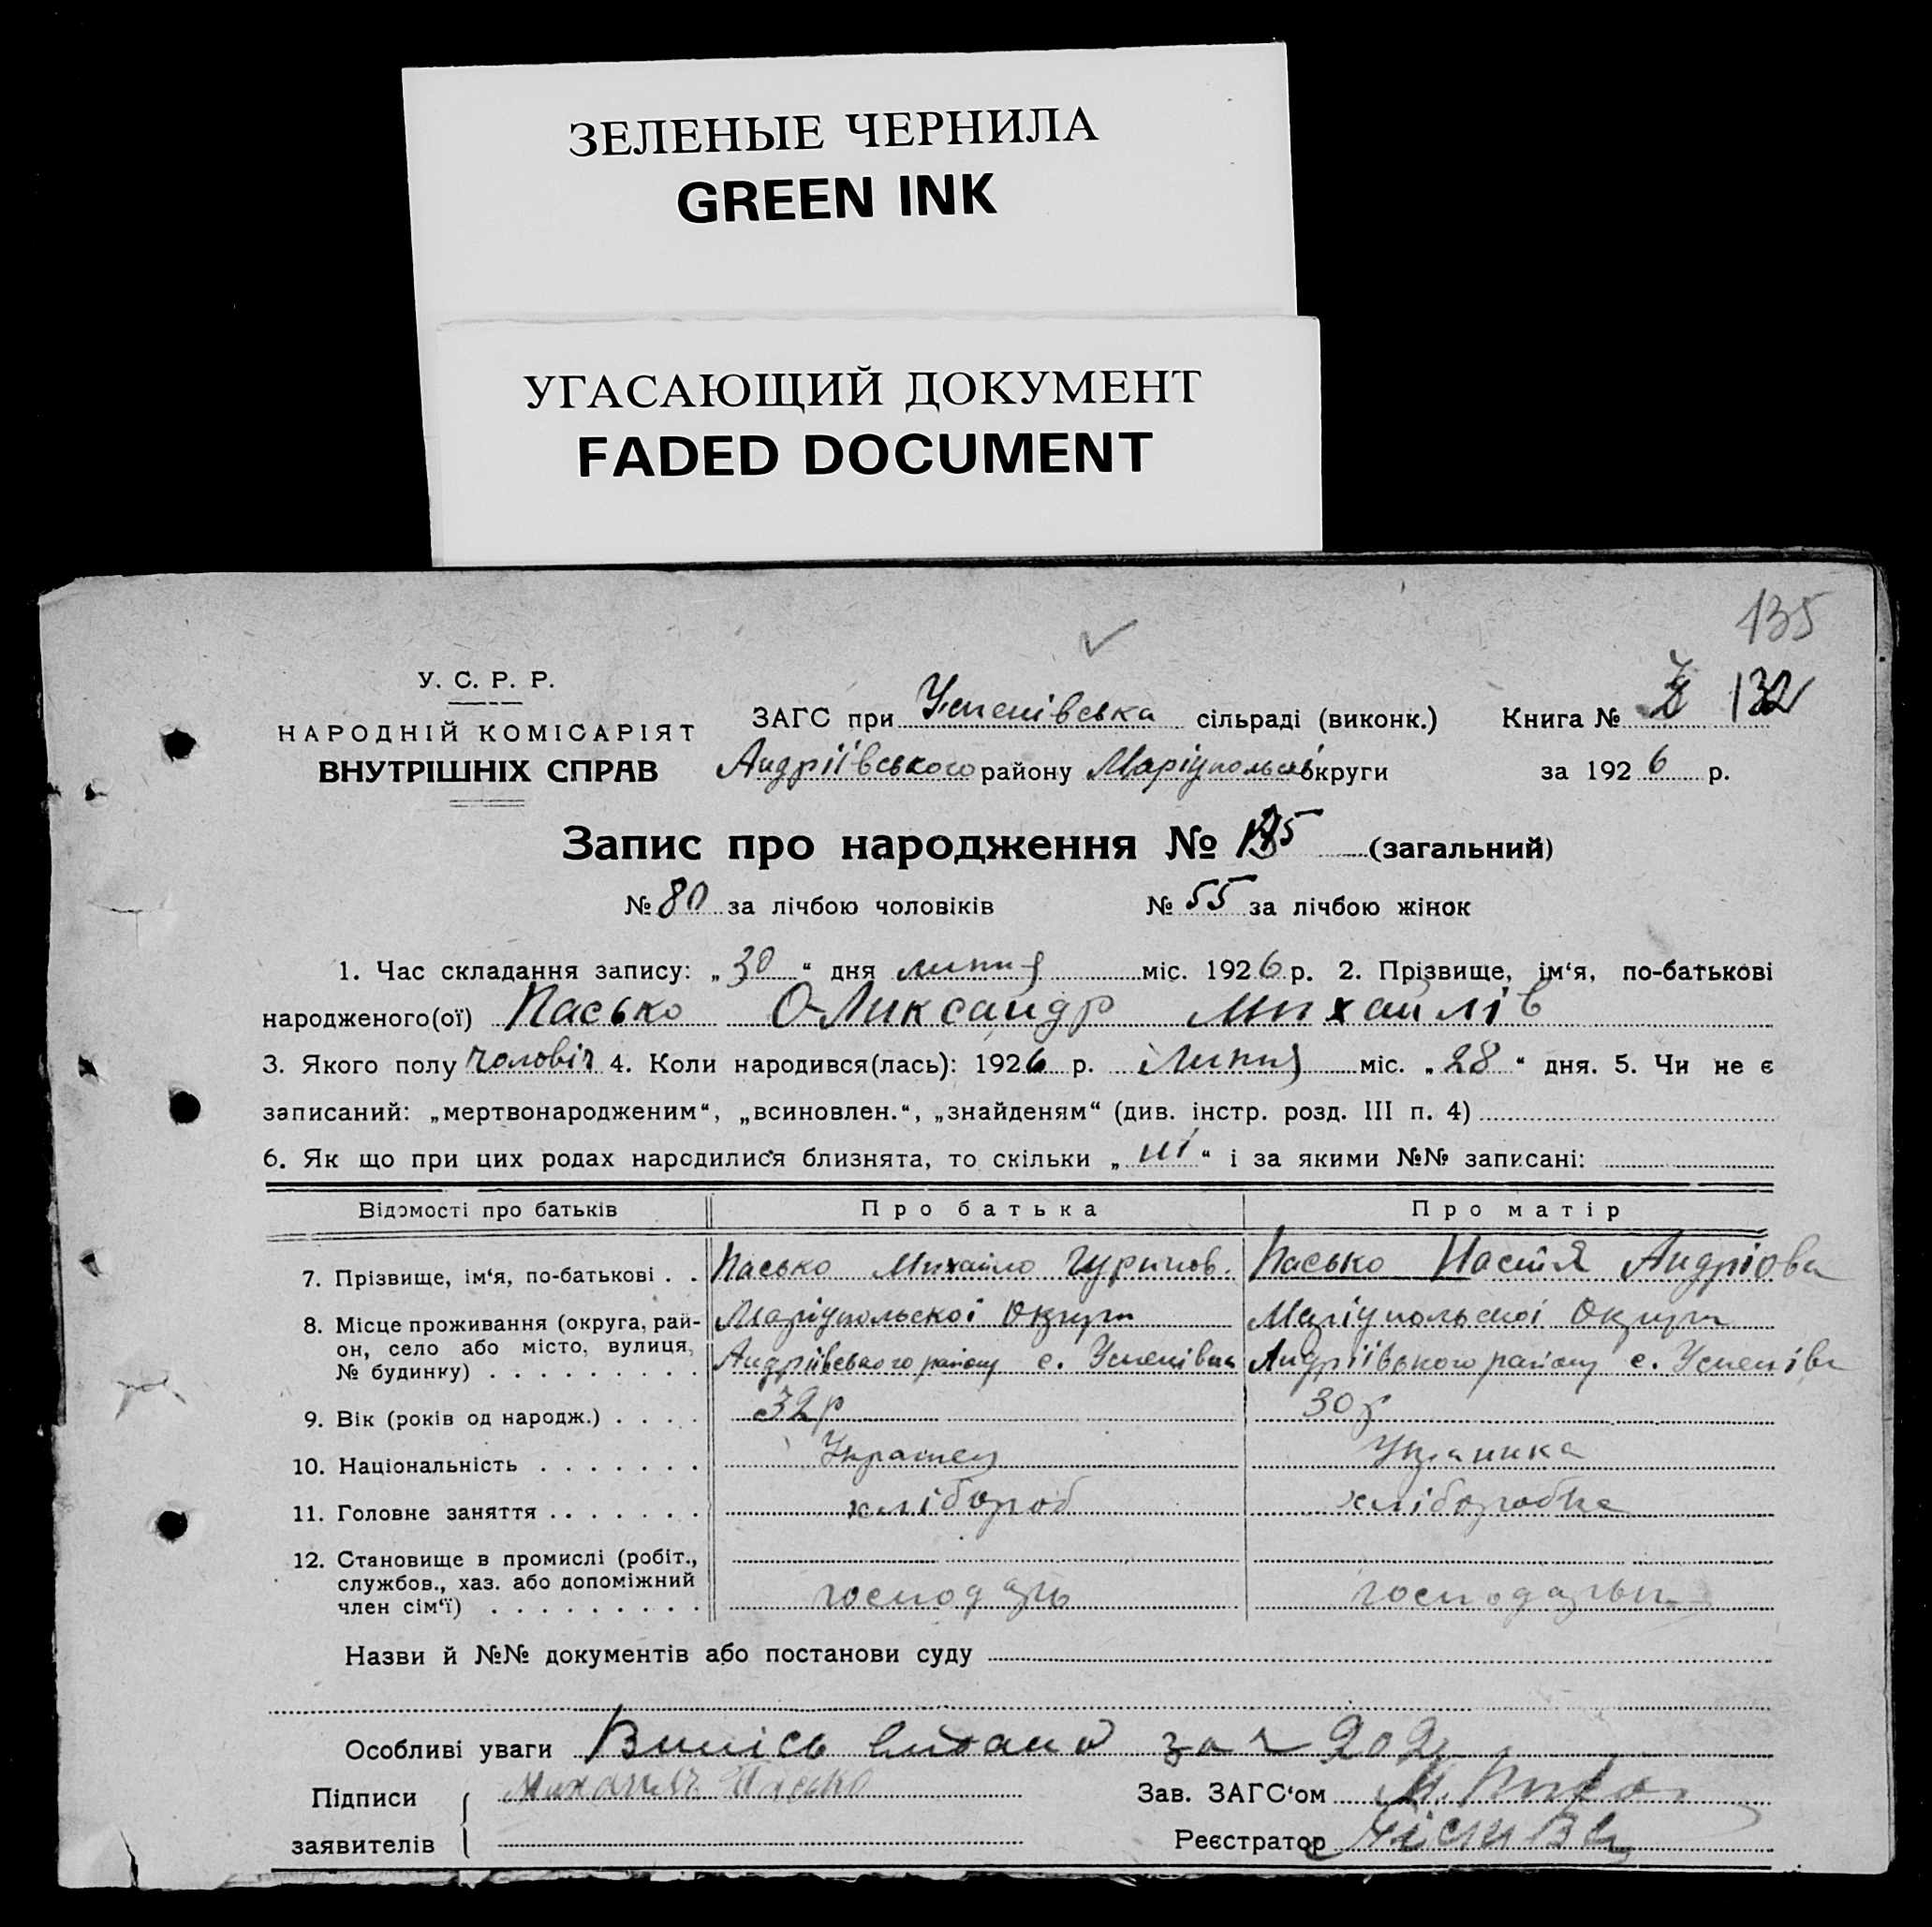 ЗЕЛЕНЫЕ ЧЕРНИЛА
GREEN INK
УГАСАЮЩИЙ ДОКУМЕНТ
FADED DOCUMENT
135
У. С. Р. Р.
НАРОДНІЙ КОМІСАРІЯТ
ВНУТРІШНІХ СПРАВ
ЗАГС при Успенівська сільраді (виконк.) Книга № 132
Андріївського району Маріупольськ округи за 1926 р.
Запис про народження № 135 (загальний)
№ 80 за лічбою чоловіків № 55 за лічбою жінок
1. Час складання запису: „30“ дня липня міс. 1926 р. 2. Прізвище, ім‘я, по-батькові
народженого(ої) Пасько Оликсандр Михайлів
3. Якого полу чоловіч 4. Коли народився(лась): 1926 р. Липня міс. „28“ дня. 5. Чи не є
записаний: „мертвонародженим“, „всиновлен.“, „знайденям“ (див. інстр. розд. III п. 4)
6. Як що при цих родах народилися близнята, то скільки „ні“ і за якими №№ записані:
Відомості про батьків Про батька Про матір
7. Прізвище, ім‘я, по-батькові . . Пасько Михайло Пасько Настя Андріова
8. Місце проживання (округа, рай- Маріупольскоі Округи Маріупольскоі Округи
он, село або місто, вулиця, Андріївського району с. Успенівка Андріївського району с. Успенівк
№ будинку) . . . . . . . . .
9. Вік (років од народж.) . . . . 32 р 30 р
10. Національність . . . . . . . Украінец Украинка
11. Головне заняття . . . . . . . хлібороб хліборобка
12. Становище в промислі (робіт.,
службов., хаз. або допоміжний
член сім‘ї) . . . . . . . . . господарь господарька
Назви й №№ документів або постанови суду
Особливі уваги Випісь видано за № 202
Підписи Михаил Пасько Зав. ЗАГС‘ом
заявителів Реєстратор